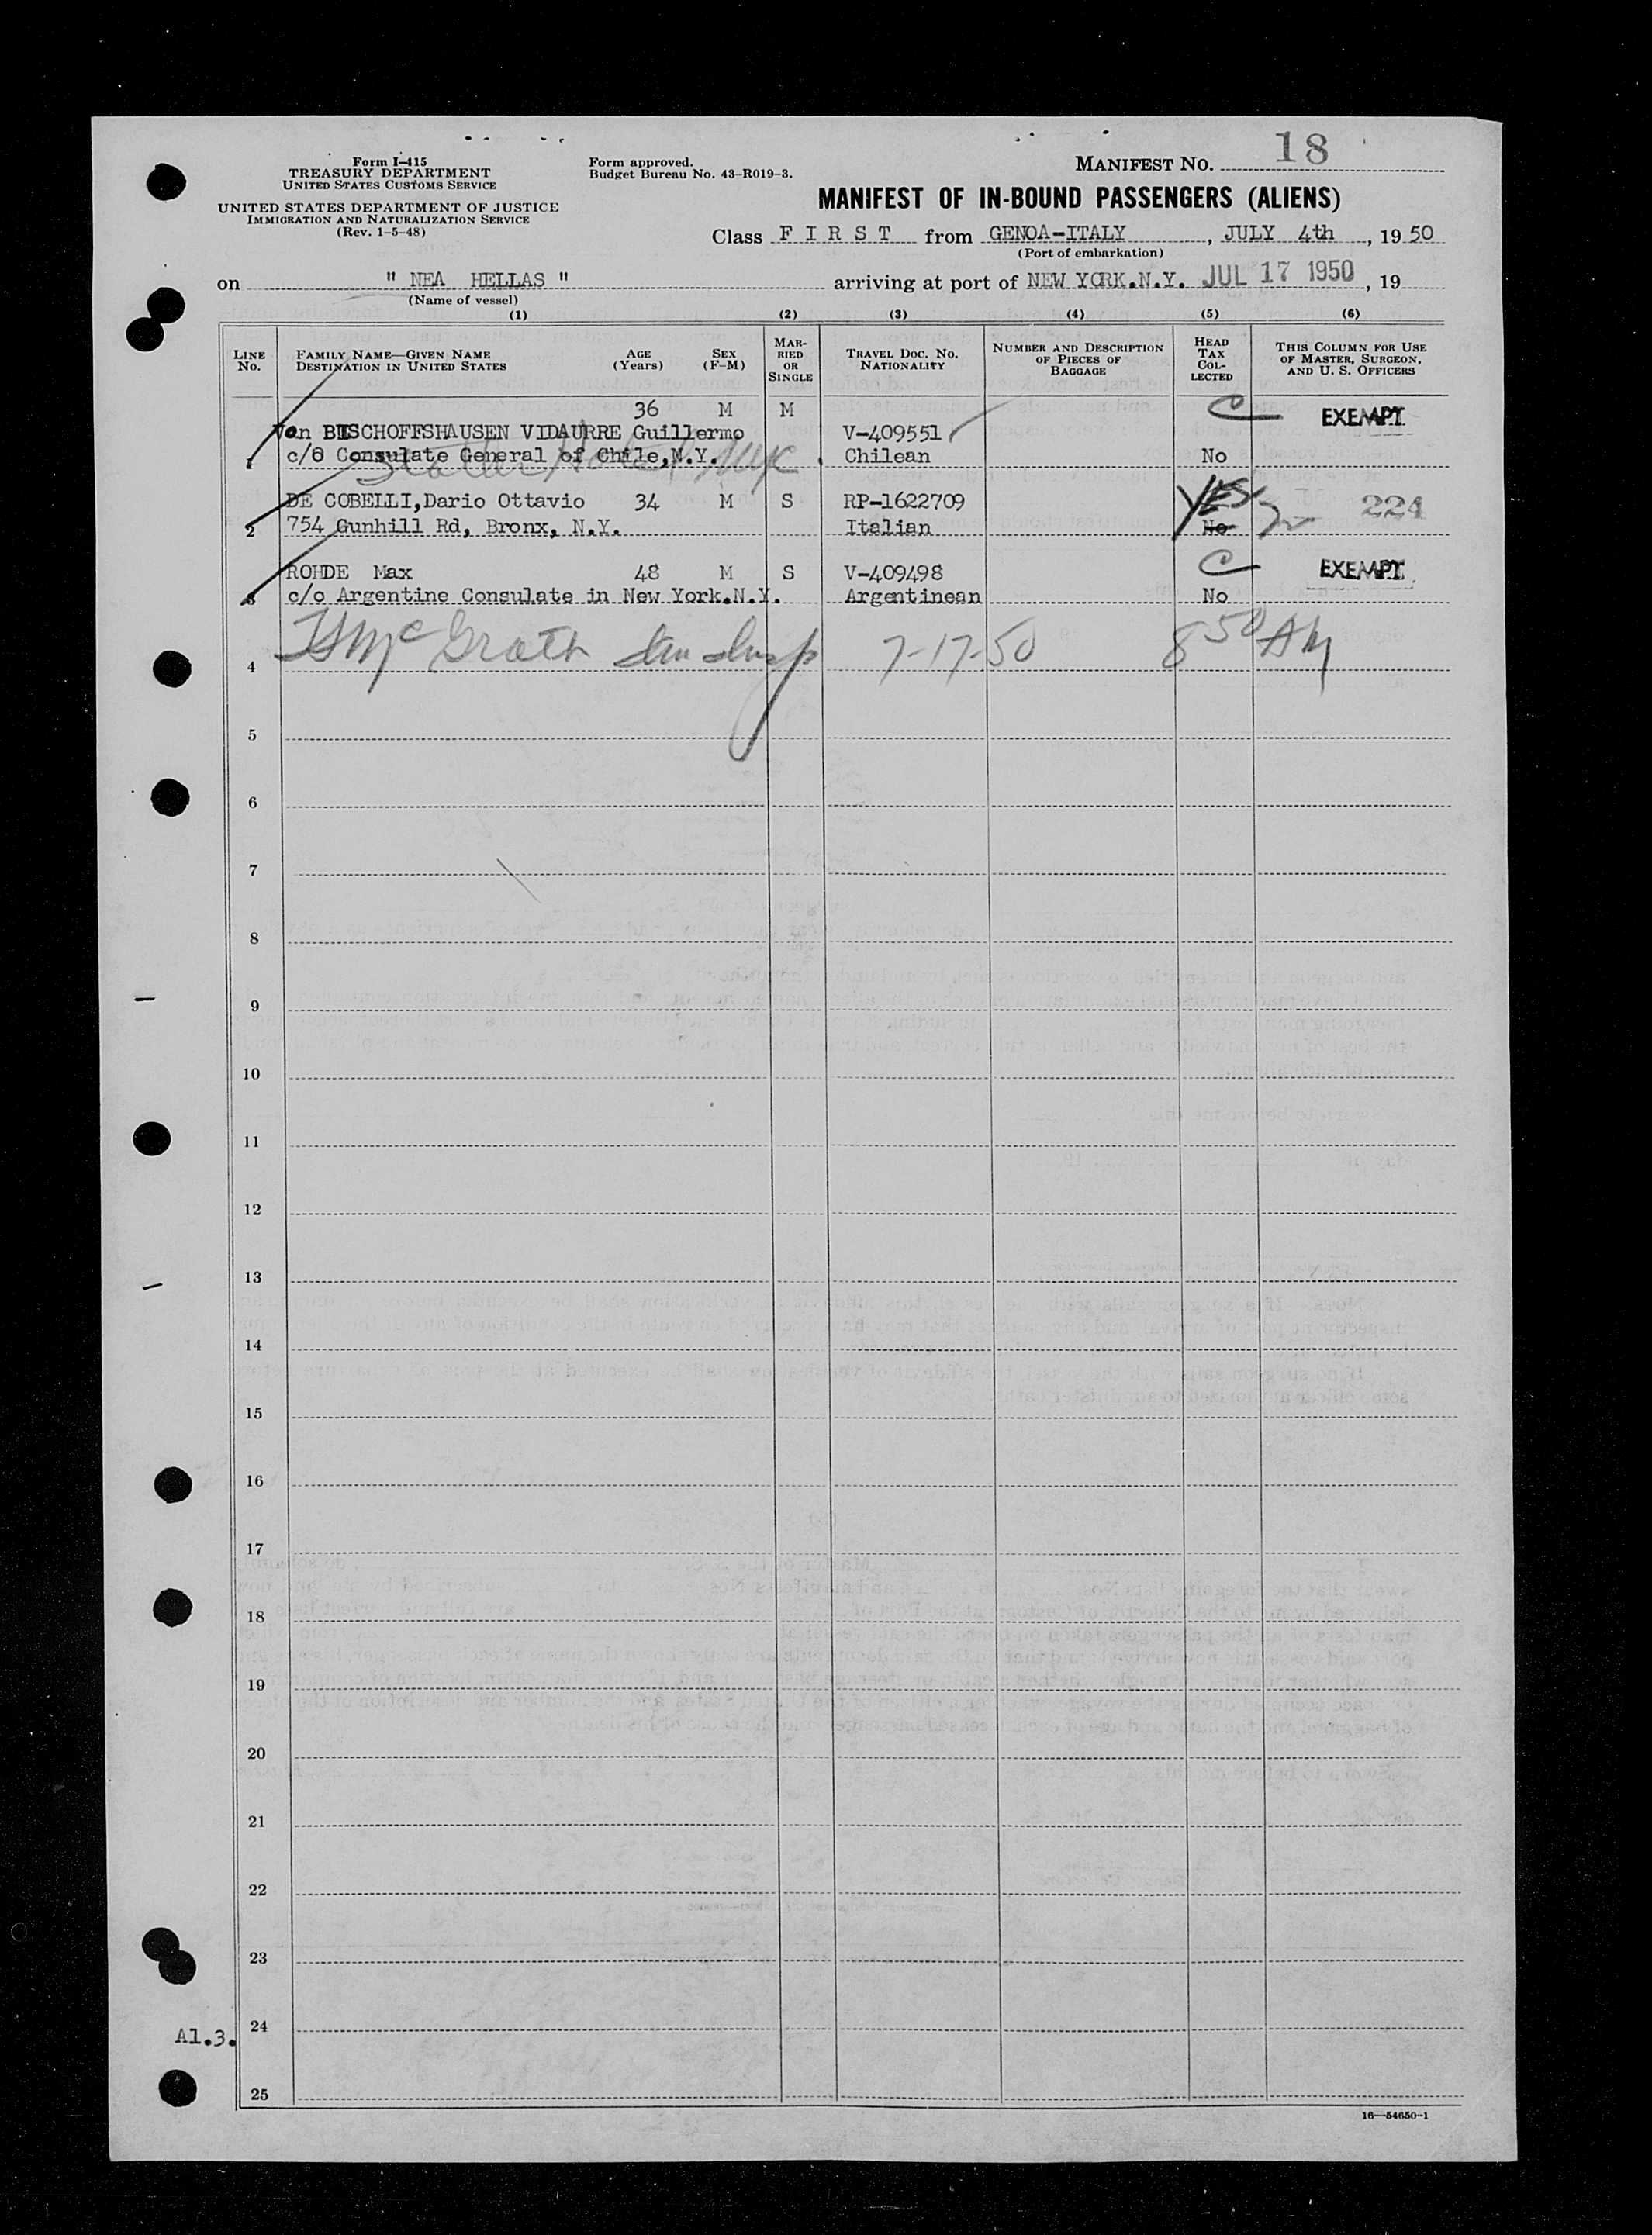 18
Form I-415
TREASURY DEPARTMENT
UNITED STATES CUSTOMS SERVICE
UNITED STATES DEPARTMENT OF JUSTICE
IMMIGRATION AND NATURALIZATION SERVICE
(Rev. 1-5-48)
Form approved.
Budget Bureau No. 43-R019-3.
MANIFEST NO.
MANIFEST OF IN-BOUND PASSENGERS (ALIENS)
Class F I R S T from GENOA-ITALY, JULY 4th, 1950
(Port of embarkation)
on " NEA HELLAS " arriving at port of NEW YORK.N.Y. JUL 17 1950, 19
(Name of vessel)
(1) (2) (3) (4) (5) (6)
LINE NO.
FAMILY NAME—GIVEN NAME
DESTINATION IN UNITED STATES
AGE (Years)
SEX (F-M)
MARRIED OR SINGLE
TRAVEL DOC. NO.
NATIONALITY
NUMBER AND DESCRIPTION OF PIECES OF BAGGAGE
HEAD TAX COLLECTED
THIS COLUMN FOR USE OF MASTER, SURGEON, AND U. S. OFFICERS
36 M M C EXEMPT
Von BISCHOFFSHAUSEN VIDAURRE Guillermo V-409551
1 c/o Consulate General of Chile,N.Y. Chilean No
Statler Hotel NYC
DE COBELLI,Dario Ottavio 34 M S RP-1622709 YES 224
2 754 Gunhill Rd, Bronx, N.Y. Italian No
ROHDE Max 48 M S V-409498 C EXEMPT
3 c/o Argentine Consulate in New York.N.Y. Argentinean No
4 McGrath 7-17-50 8 50 AM
5
6
7
8
9
10
11
12
13
14
15
16
17
18
19
20
21
22
23
Al.3. 24
25
16—54650-1